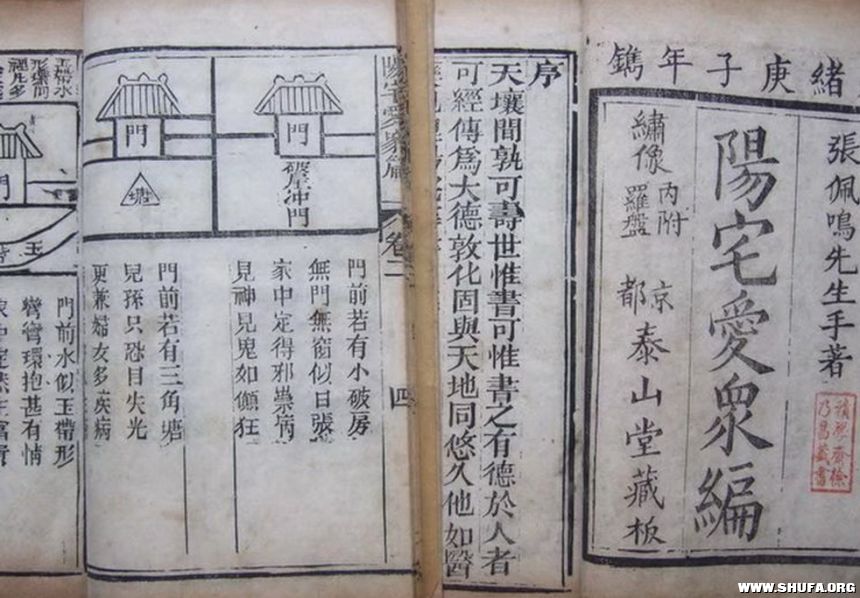 緒庚子年鐫
張佩鳴先生手著
陽宅愛眾編
繡像內附羅盤
京都泰山堂藏板
積學齋徐
乃昌藏書
序
天壤間孰可壽世惟書可惟書之有德於人者
可經傳為大德敦化固與天地同悠久他如醫
陽宅愛眾編 卷二 四
門
破屋冲門
門前若有小破房
無門無窗似口張
家中定得邪祟病
見神見鬼如顛狂
門
塘
門前若有三角塘
兒孫只恐目失光
更兼婦女多疾病
玉帶水
門
玉
門前水似玉帶形
彎彎環抱甚有情
WWW.SHUFA.ORG